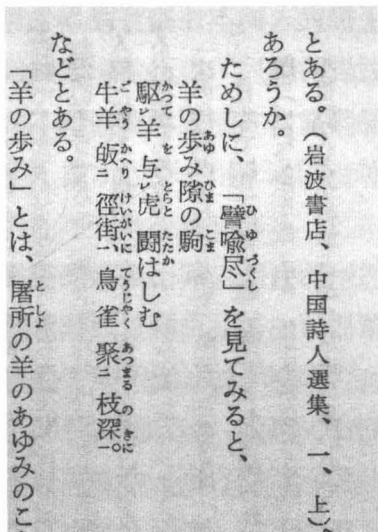 とある。（岩波書店、中国詩人選集、一、上）、
あろうか。
ためしに、「譬喩尽」を見てみると、
羊の歩み隙の駒
駆㆑羊与㆑虎闘はしむ
牛羊皈㆓徑街㆒、鳥雀聚㆓枝深㆒。
などとある。
「羊の歩み」とは、屠所の羊のあゆみのこ